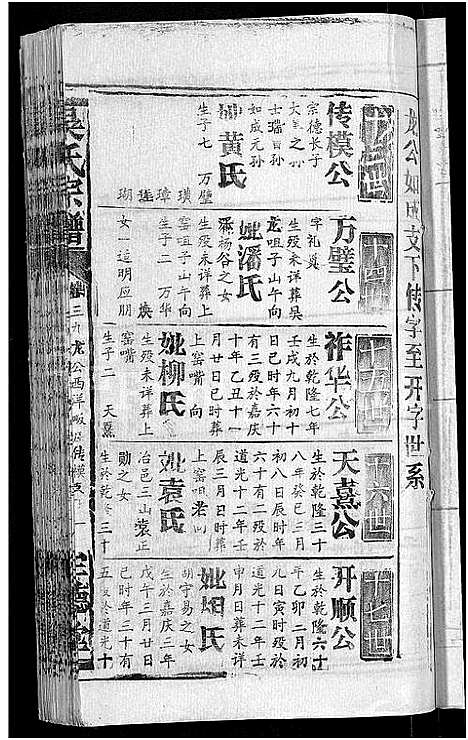 龙公如成文下传字至开字世系
十三世
传模公
宗德长子
大圭之孙
士瑞曾孙
如成元孙
妣黄氏
生子七 万璧
璜
璋
琏
瑚
十四世
万璧公
字礼奠
生殁未详葬吴
龙咀子山午向
妣潘氏
杨谷之女
生殁未详葬上
窑咀子山午向
生子二 万华
焕
女一适明应朋
十五世
祚华公
生於乾隆七年
壬戌九月初十
日巳时年六十
有三殁於嘉庆
十年乙丑十一
月廿日巳时葬
上窑嘴 向
妣柳氏
生殁未详葬上
窑嘴
生子二 天熹
十六世
天熹公
生於乾隆三十
八年癸巳三月
初八日辰时年
六十有二殁於
道光十二年壬
辰三月日时葬
上窑咀老
妣袁氏
冶邑三山袁正
勋之女
生於乾隆三十
十七世
开顺公
生於乾隆六十
年乙卯二月初
九日寅时殁於
道光十二年壬
申月日葬未详
妣胡氏
胡守易之女
生於嘉庆三年
戊午三月廿日
巳时年三十有
五殁於道光十
吴氏宗谱
卷三九 龙公西洋畈